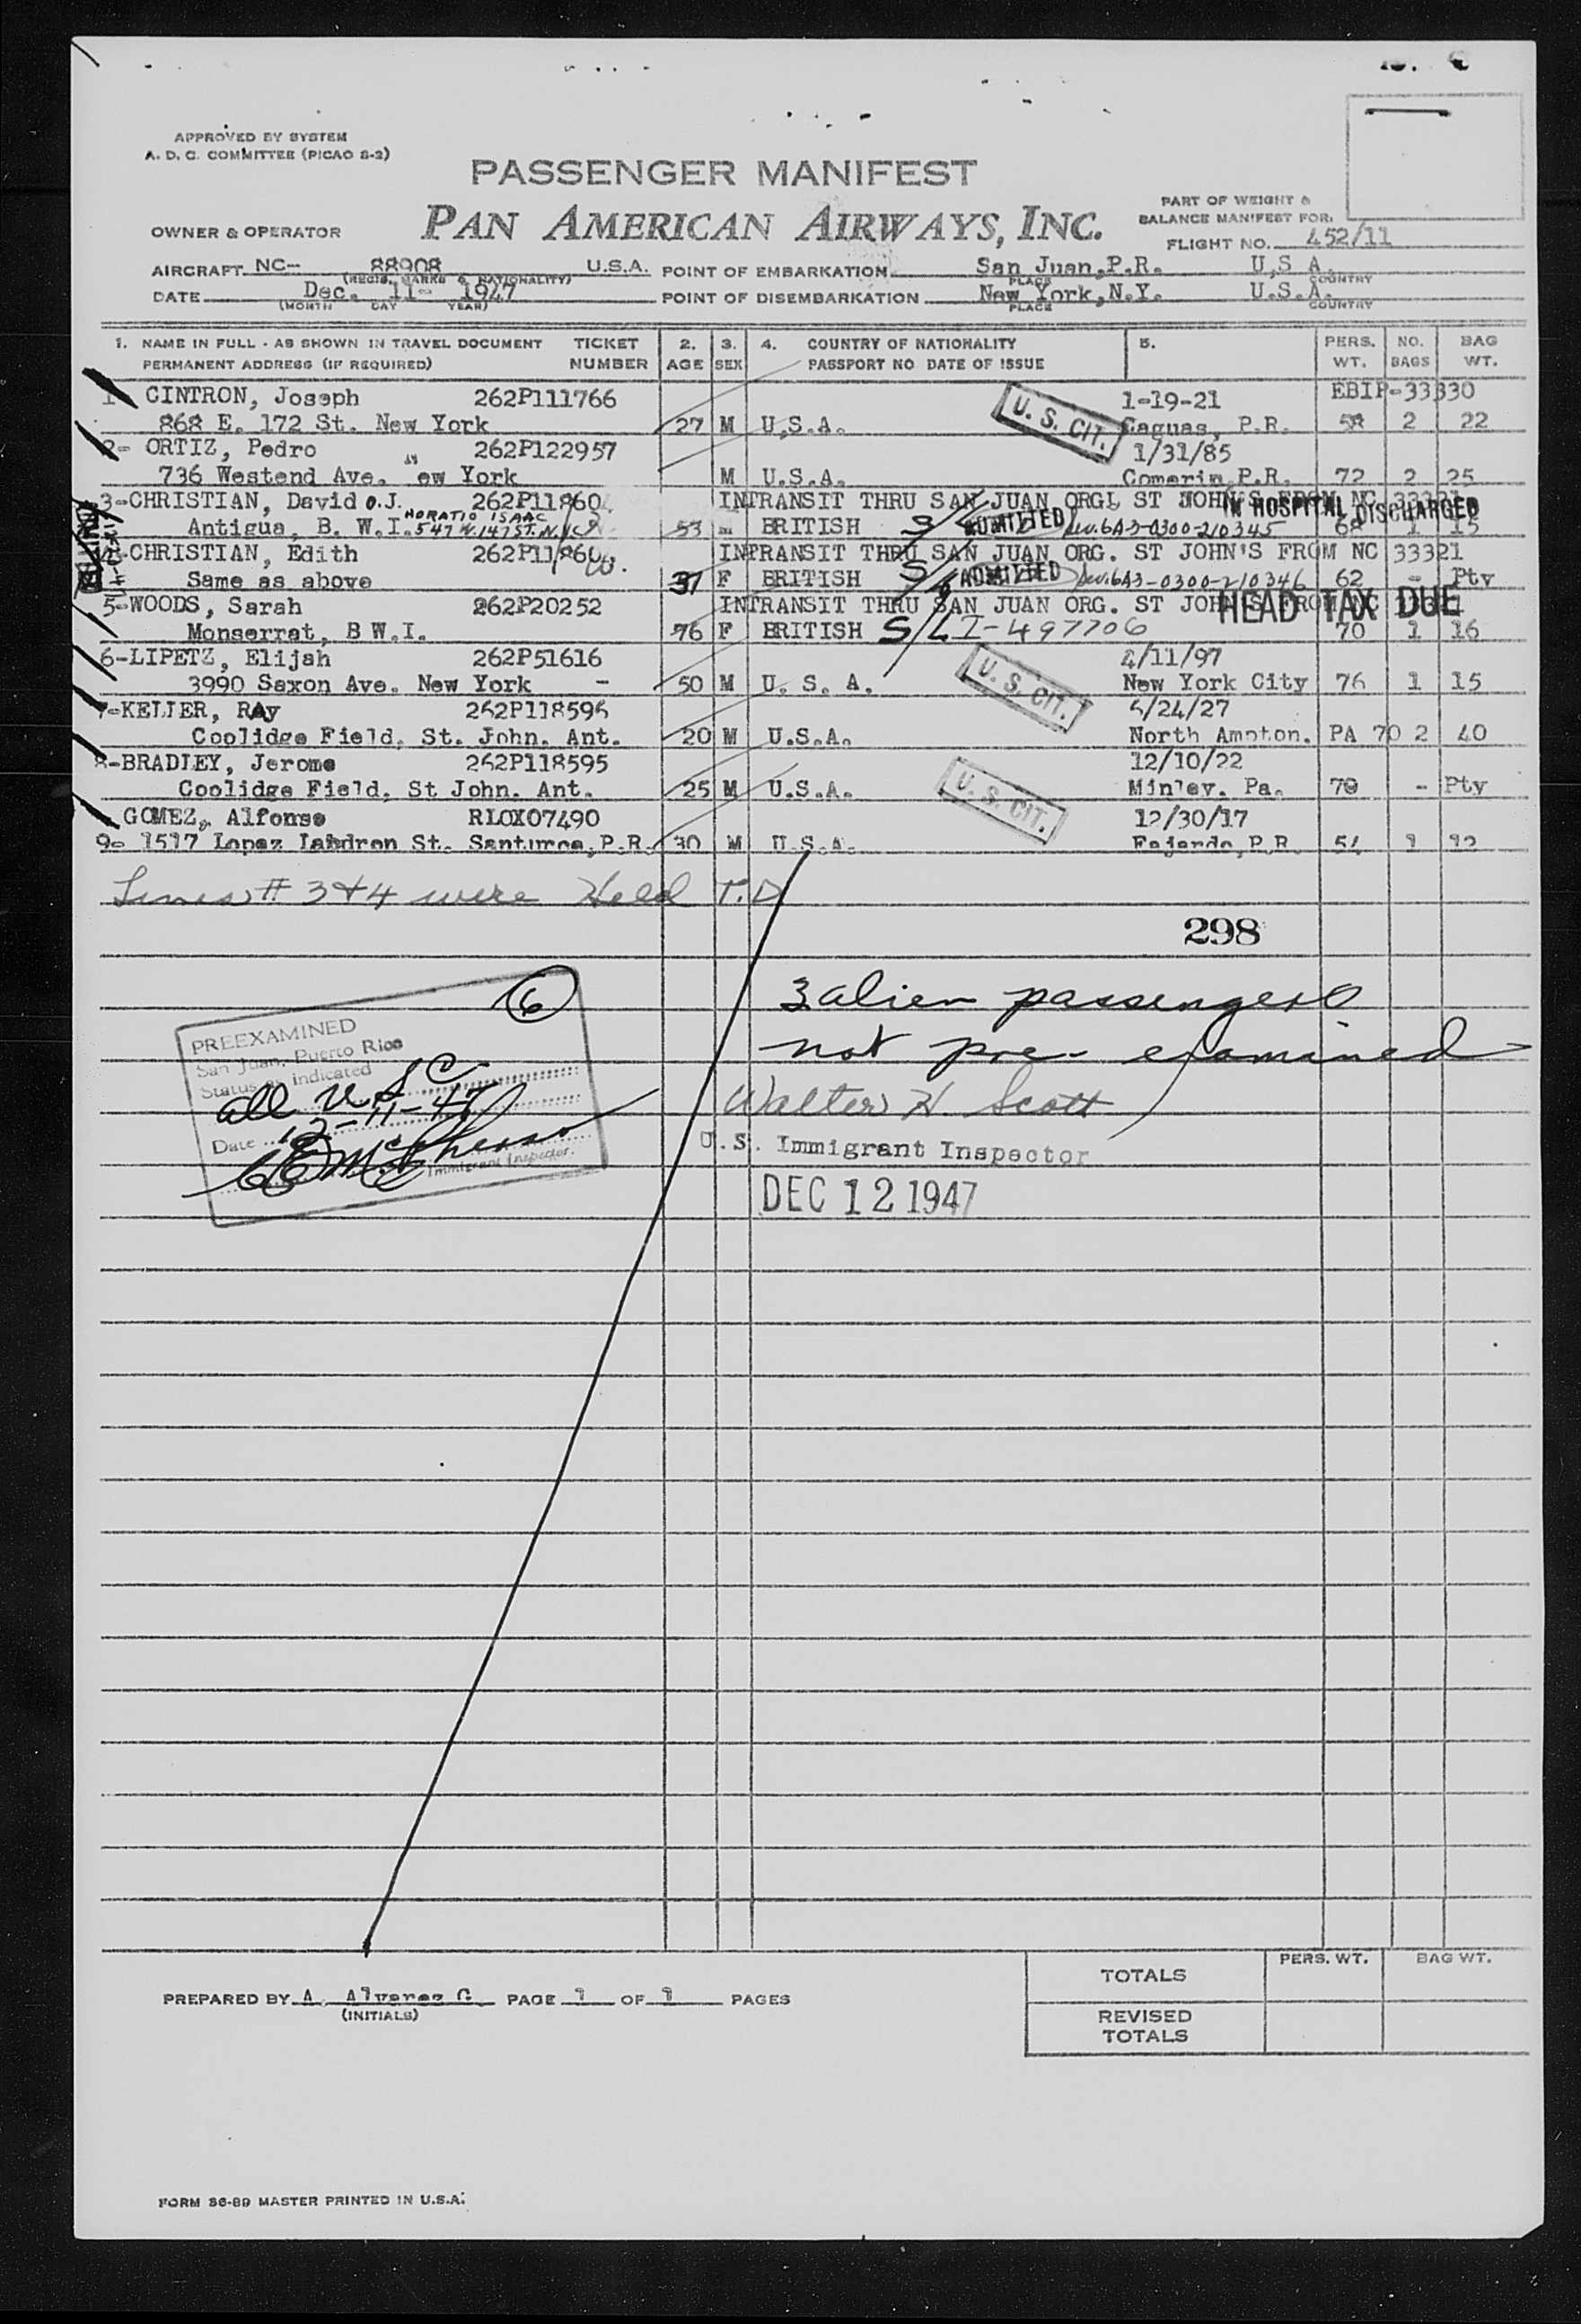 APPROVED BY SYSTEM
A. D. C. COMMITTEE (PICAO S-2)
PASSENGER MANIFEST
PAN AMERICAN AIRWAYS, INC.
PART OF WEIGHT &
BALANCE MANIFEST FOR:
FLIGHT NO. 452/11
OWNER & OPERATOR
AIRCRAFT NC- 88908 U.S.A. POINT OF EMBARKATION San Juan, P.R. U.S.A.
(REGIS. MARKS & NATIONALITY) PLACE COUNTRY
DATE Dec. 11- 1947 POINT OF DISEMBARKATION New York, N.Y. U.S.A.
(MONTH DAY YEAR) PLACE COUNTRY
1. NAME IN FULL - AS SHOWN IN TRAVEL DOCUMENT TICKET 2. 3. 4. COUNTRY OF NATIONALITY 5. PERS. NO. BAG
PERMANENT ADDRESS (IF REQUIRED) NUMBER AGE SEX PASSPORT NO DATE OF ISSUE WT. BAGS WT.
CINTRON, Joseph 262P111766 1-19-21 EBIP-33330
868 E. 172 St. New York 27 M U.S.A. U. S. CIT. Caguas, P.R. 58 2 22
2- ORTIZ, Pedro 262P122957 1/31/85
736 Westend Ave. ew York M U.S.A. Comeria P.R. 72 2 25
3-CHRISTIAN, David O.J. 262P11860 INTRANSIT THRU SAN JUAN ORG. ST JOHN'S FROM NC 33321
HORATIO ISAAC IN HOSPITAL DISCHARGED
Antigua, B. W.I. 547 W. 147 ST. N.Y.C. 53 m BRITISH ADMITTED 6A3-0300-210345 68 1 15
CHRISTIAN, Edith INTRANSIT THRU SAN JUAN ORG. ST JOHN'S FROM NC 33321
Same as above 37 F BRITISH ADMITTED 6A3-0300-210346 62 - Pty
5-WOODS, Sarah 262P20252 INTRANSIT THRU SAN JUAN ORG. ST JOHN'S FROM NC
HEAD TAX DUE
Monserrat, B W.I. 76 F BRITISH S/L I-497706 70 1 16
6-LIPETZ, Elijah 262P51616 4/11/97
3990 Saxon Ave. New York - 50 M U. S. A. U. S. CIT. New York City 76 1 15
7-KELLER, RAy 262P118596 6/24/27
Coolidge Field, St. John. Ant. 20 M U.S.A. North Ampton. PA 70 2 40
8-BRADLEY, Jerome 262P118595 12/10/22
Coolidge Field, St John. Ant. 25 M U.S.A. U. S. CIT. Minley. Pa. 79 - Pty
GOMEZ, Alfonso RLOX07490 12/30/17
9- 1517 Lopez Landron St. Santurce, P.R. 30 M U.S.A. Fajardo, P.R. 54 1 12
Lines # 3 & 4 were Held T.D
298
6
3 alien passengers
not pre- examined
PREEXAMINED
San Juan, Puerto Rico
Status as indicated
all U S C
Date 12-11-47
Immigrant Inspector.
Walter H. Scott
U.S. Immigrant Inspector
DEC 12 1947
PREPARED BY A. Alvarez G. PAGE 1 OF 1 PAGES
(INITIALS)
PERS. WT. BAG WT.
TOTALS
REVISED
TOTALS
FORM 86-89 MASTER PRINTED IN U.S.A.